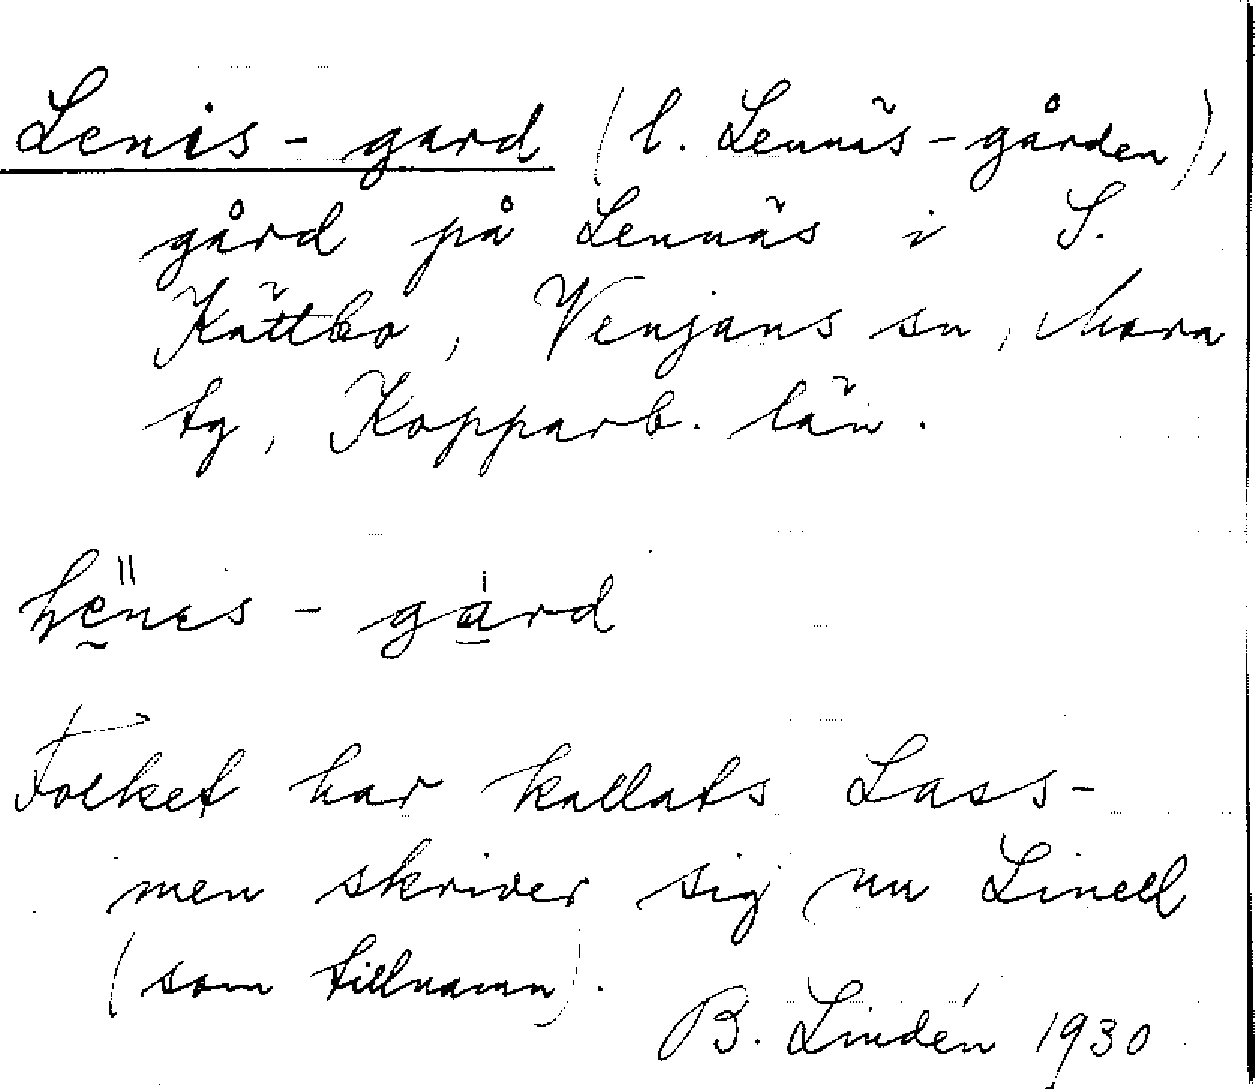 Lenis-gard (l. Lennäs-gården),
gård på Lennäs i S.
Kättbo, Venjans sn, Mora
tg, Kopparb. län.
lenes-gard
Folket har kallats Lass-
men skriver sig nu Linell
(som tillnamn).
B. Lindén 1930